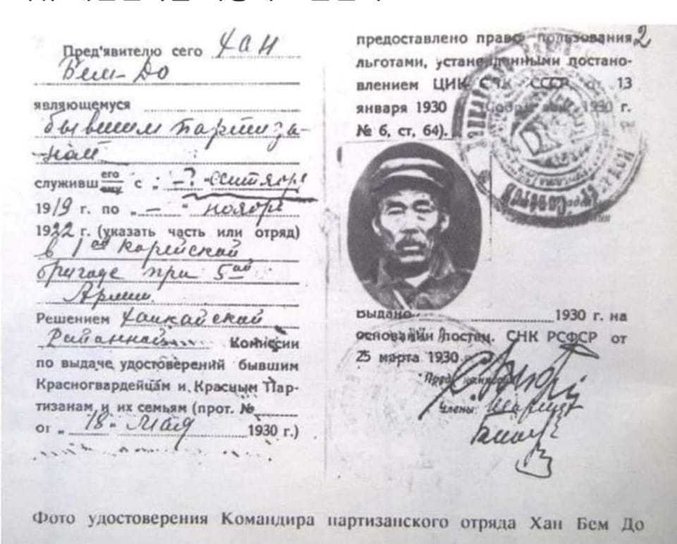 Пред'явителю сего Хан
Бем-До
являющемуся
бывшим партиза-
ном
служивш его ему с „ —? сентября
1919 г. по „ — ноября
1922 г. (указать часть или отряд)
в 1ой Корейской
бригаде при 5ой
Армии
Решением Ханкайской
Районной Комиссии
по выдаче удостоверений бывшим
Красногвардейцам и, Красным Пар-
тизанам и их семьям (прот. №
от „ 18 - Мая 1930 г.)
2
предоставлено право пользования
льготами, установленными постано-
влением ЦИК СНК СССР от 13
января 1930 1930 г.
№ 6, ст, 64).
выдано 1930 г. на
основании постан. СНК РСФСР от
25 марта 1930
Члены:
Фото удостоверения Командира партизанского отряда Хан Бем До